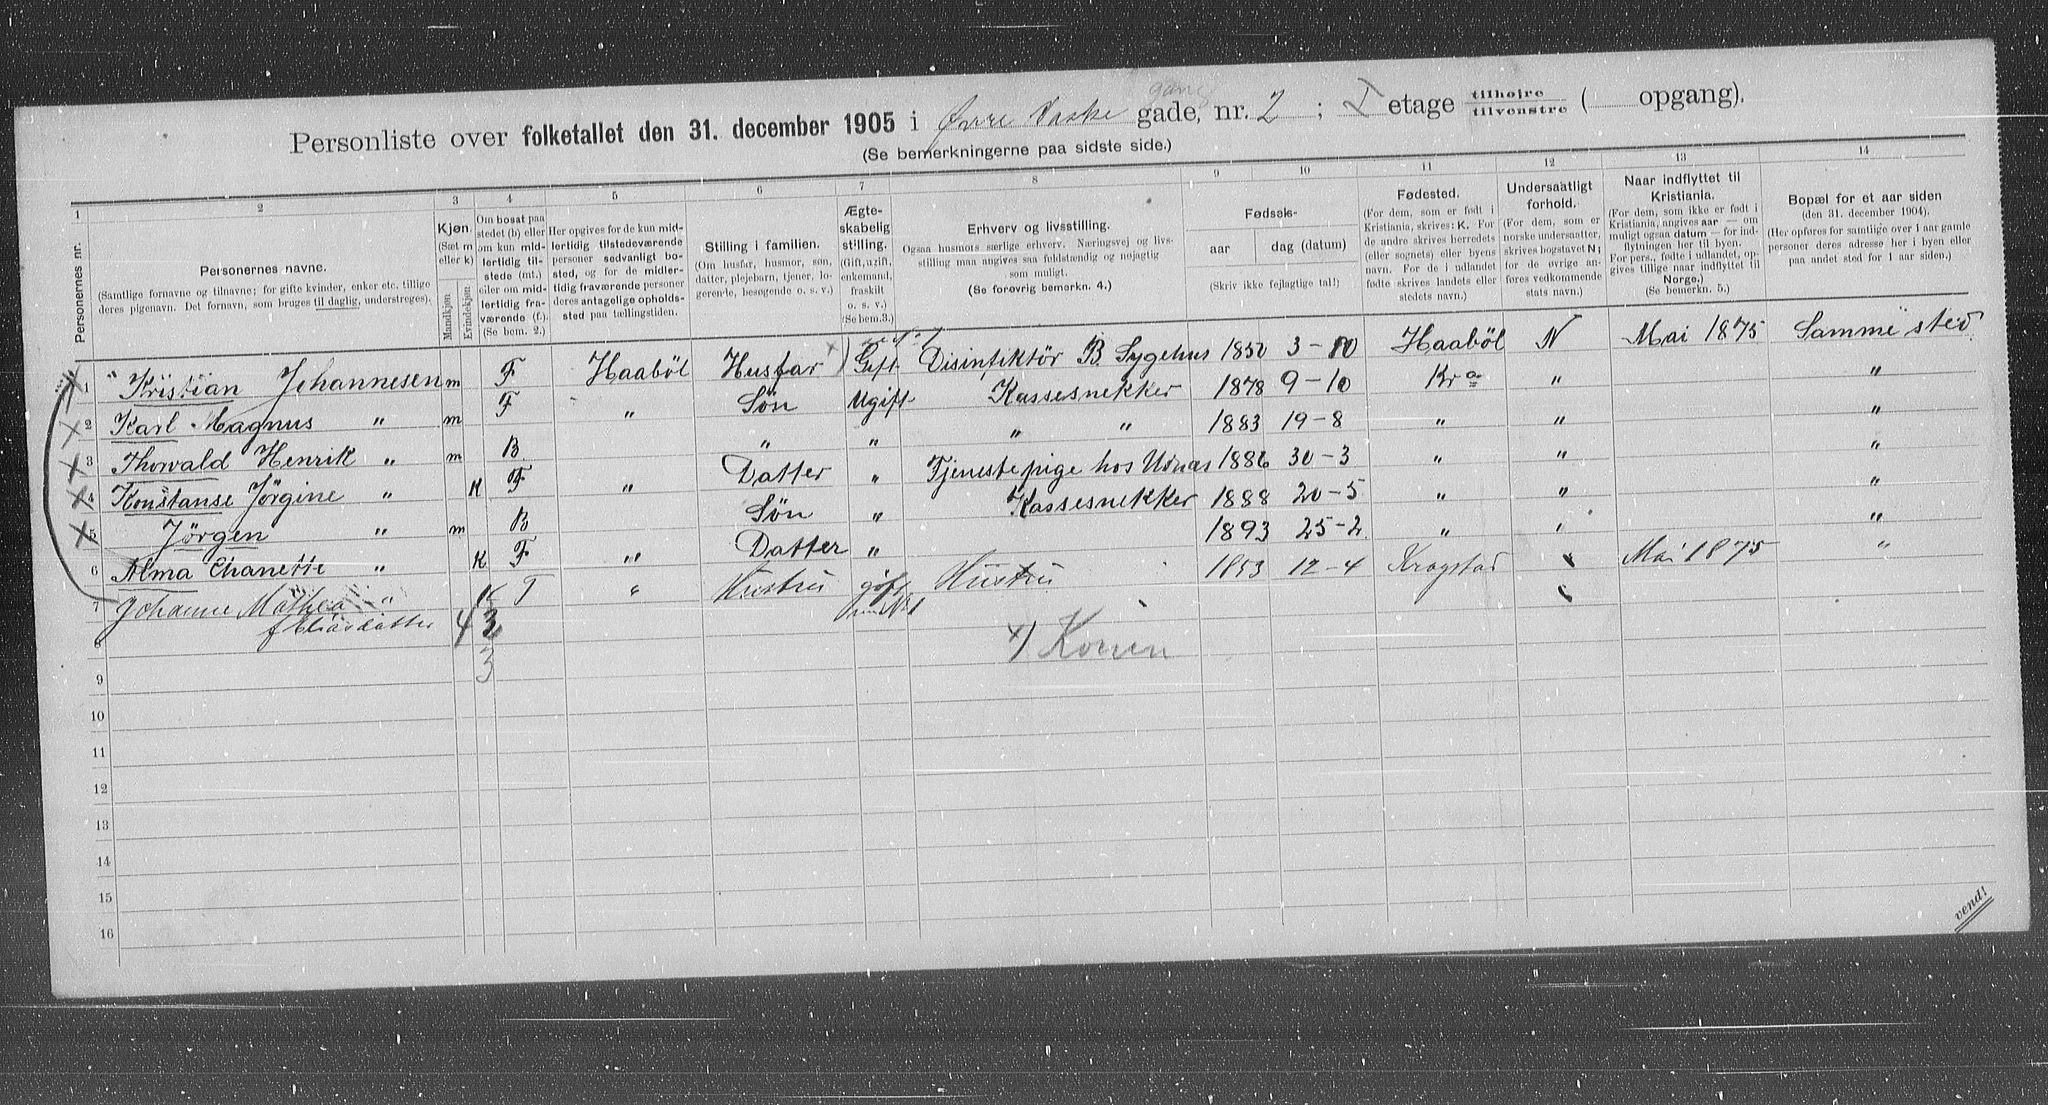 Personliste over folketallet den 31. december 1905 i Øvre Vaske gang gade, nr. 2 ; I etage tilhøjre tilvenstre ( opgang).
(Se bemerkningerne paa sidste side.)
1 2 3 4 5 6 7 8 9 10 11 12 13 14
Personernes nr.
Personernes navne.
(Samtlige fornavne og tilnavne; for gifte kvinder, enker etc. tillige
deres pigenavn. Det fornavn, som bruges til daglig, understreges).
Kjøn.
(Sæt m
eller k)
Mandkjøn
Kvindekjøn
Om bosat paa
stedet (b) eller
om kun mid-
lertidig til-
stede (mt.)
eller om mid-
lertidig fra-
værende (f.)
(Se bem. 2.)
Her opgives for de kun mid-
lertidig tilstedeværende
personer sedvanligt bo-
sted, og for de midler-
tidig fraværende personer
deres antagelige opholds-
sted paa tællingstiden.
Stilling i familien.
(Om husfar, husmor, søn,
datter, plejebarn, tjener, lo-
gerende, besøgende o. s. v.)
Ægte-
skabelig
stilling.
(Gift, ugift,
enkemand,
fraskilt
o. s. v.)
(Se bem.3.)
Erhverv og livsstilling.
Ogsaa husmors særlige erhverv. Næringsvej og livs-
stilling maa angives saa fuldstændig og nøjagtig
som muligt.
(Se forøvrig bemerkn. 4.)
Fødsels-
aar dag (datum)
(Skriv ikke fejlagtige tal!)
Fødested.
(For dem, som er født i
Kristiania, skrives: K. For
de andre skrives herredets
(eller sognets) eller byens
navn. For de i udlandet
fødte skrives landets eller
stedets navn.)
Undersaatligt
forhold.
(For dem, som er
norske undersaatter,
skrives bogstavet N;
for de øvrige an-
føres vedkommende
stats navn.)
Naar indflyttet til
Kristiania.
(For dem, som ikke er født i
Kristiania, angives aar — om
muligt ogsaa datum — for ind-
flytningen her til byen.
For pers., fødte i udlandet, op-
gives tillige naar indflyttet til
Norge.)
(Se bemerkn. 5.)
Bopæl for et aar siden
(den 31. december 1904).
(Her opføres for samtlige over 1 aar gamle
personer deres adresse her i byen eller
paa andet sted for 1 aar siden.)
1 " Kristian Johannesen m F Haaböl Husfar Gift Disinfiktör B. Sygehus 1850 3-10 Haaböl N Mai 1875 Samme sted
2 Karl Magnus " m F " Sön Ugift Kassesnekker 1878 9-10 Kra " "
3 Thorvald Henrik " m B " " " " 1883 19-8 " " "
4 Konstanse Jörgine " K F " Datter " Tjenestepige hos Usnæs 1886 30-3 " " "
5 Jörgen " m B Sön " Kassesnekker 1888 20-5 " " "
6 Alma Chanette " K F " Datter " 1893 25-2 " " "
7 Johanne Mathea " K F " Hustru gift m. No 1 Hustru 1853 12-4 Krogstad " Mai 1875 "
f Eliasdatter
8 4 3
3
x) Konen
9
10
11
12
13
14
15
16
vend!